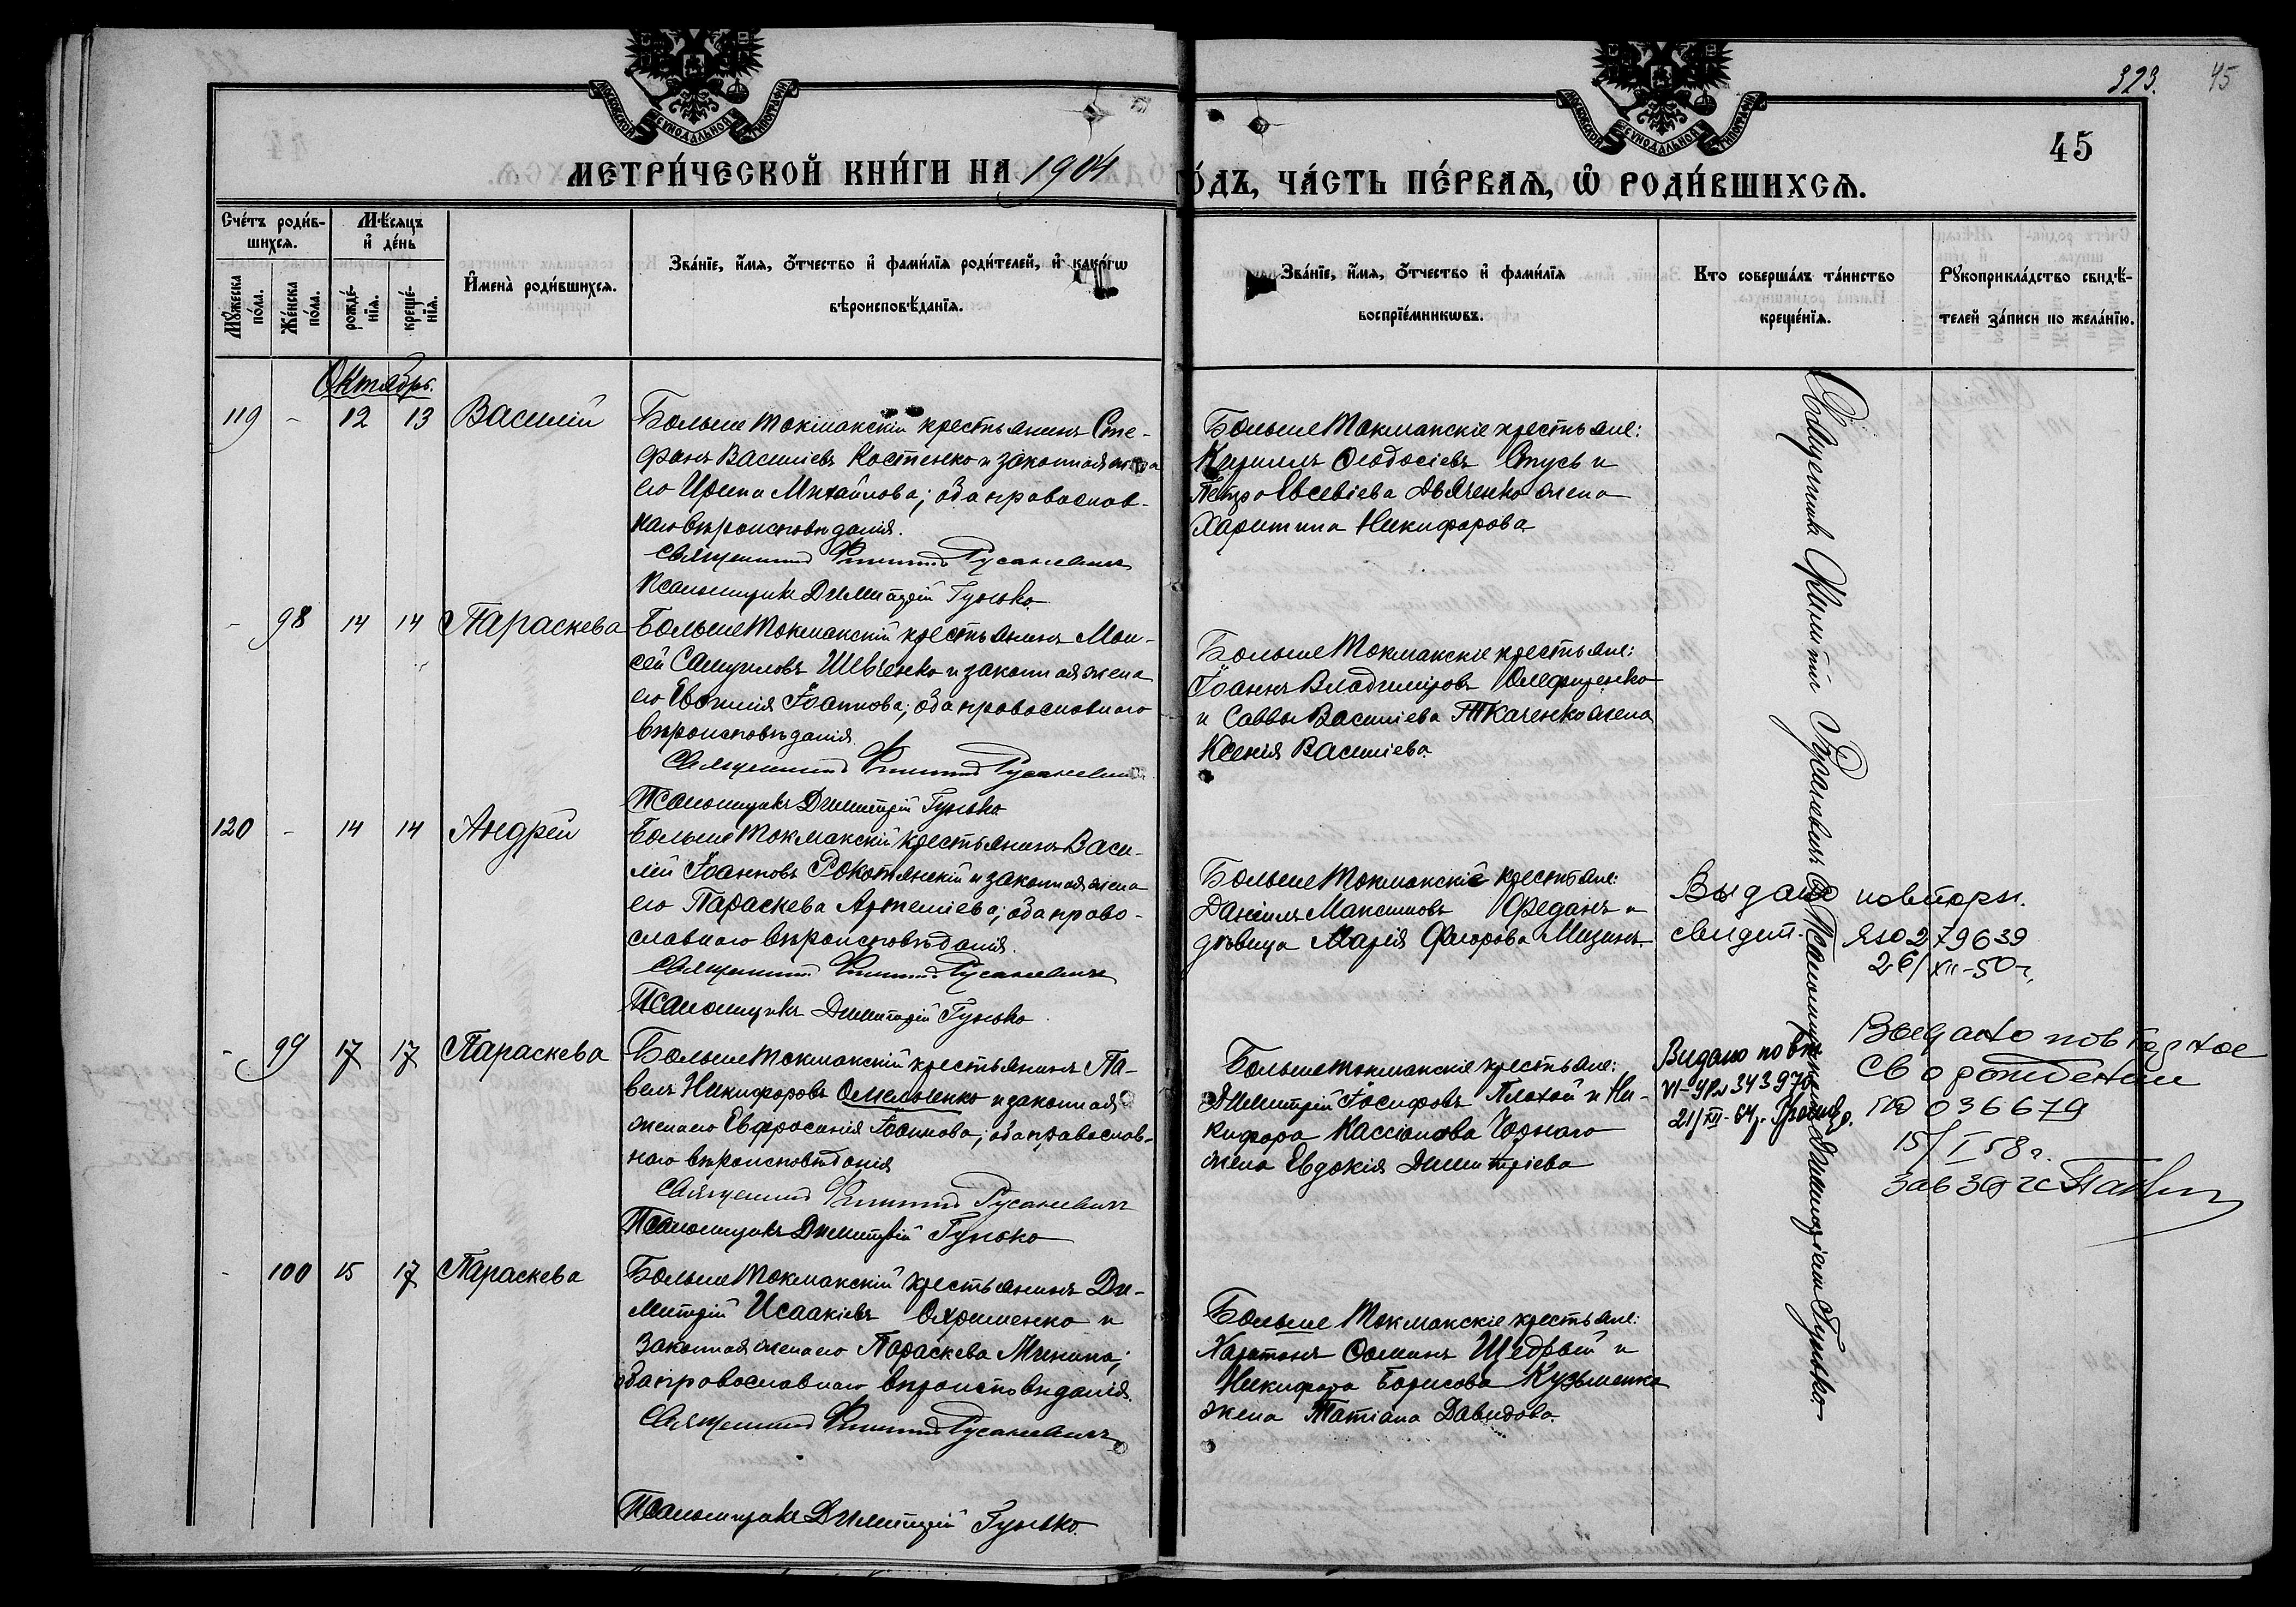 323.
45
45
МОСКОВСКОЙ СѴНОДАЛЬНОЙ ТИПОГРАФІИ
МОСКОВСКОЙ СѴНОДАЛЬНОЙ ТИПОГРАФІИ
МЕТРИ́ЧЕСКОЙ КНИ́ГИ НА 1904 ГО́ДЪ, ЧА́СТЬ ПЕ́РВАѦ, Ѡ҆ РОДИ́ВШИХСѦ.
Счéтъ роди́в-
шихсѧ.
Мꙋ́жеска по́ла.
Же́нска по́ла.
Мѣ́сѧцъ
и҆ де́нь
рожде́-
нїѧ.
креще́-
нїѧ.
И҆мена̀ роди́вшихсѧ.
Зва́нїе, и҆́мѧ, ѻ҆́тчество и҆ фами́лїѧ роди́телей, и҆ како́гѡ
вѣроисповѣ́данїѧ.
Зва́нїе, и҆́мѧ, ѻ҆́тчество и҆ фами́лїѧ
воспрїе́мникѡвъ.
Кто соверша́лъ та́инство
креще́нїѧ.
Рꙋкоприкла́дство свидѣ́-
телей за́писи по жела́нїю.
Октябрь.
119 - 12 13 Василій
Больше Токмакскій крестьянинъ Сте-
фанъ Василіевъ Костенко и законная жена
его Ирина Михайлова; оба православ-
наго вѣроисповѣданія.
Священникъ Филиппъ Русаневичъ
Псаломщикъ Димитрій Гунько
Больше Токмакскіе крестьяне:
Кириллъ Ѳеодосіевъ Стусь и
Петра Евсевіева Дьяченко жена
Харитина Никифорова
- 98 14 14 Параскева
Больше Токмакскій крестьянинъ Мои-
сей Самуиловъ Шевченко и законная жена
его Евѳимія Іоаннова; оба православнаго
вѣроисповѣданія.
Священникъ Филиппъ Русаневичъ
Псаломщикъ Димитрій Гунько
Больше Токмакскіе крестьяне:
Іоаннъ Владиміровъ Олефиренко
и Саввы Василіева Ткаченко жена
Ксенія Василіева
120 - 14 14 Андрей
Больше Токмакскій крестьянинъ Васи-
лій Іоанновъ Рокотянскій и законная жена
его Параскева Артеміева; оба право-
славнаго вѣроисповѣданія.
Священникъ Филиппъ Русаневичъ
Псаломщикъ Димитрій Гунько
Больше Токмакскіе крестьяне:
Даніилъ Максимовъ Феданъ и
дѣвица Марія Мизинъ
Выдано повторн.
свидет. ЯЮ 279639
26/XII-50 г.
- 99 17 17 Параскева
Больше Токмакскій крестьянинъ Па-
велъ Никифоровъ Омельченко и законная
жена его Евфросинія Іоаннова; оба православ-
наго вѣроисповѣданія
Священникъ Филиппъ Русаневичъ
Псаломщикъ Димитрій Гунько
Больше Токмакскіе крестьяне:
Димитрій Іосифовъ Плохой и Ни-
кифора Кассіанова Чорнаго
жена Евдокія Димитріева
Видано повт
VI-УР № 343970
21/XII-64 г.
Выдано повторное
св о рождении
036679
15/I 58 г.
Зав ЗАГС
- 100 15 17 Параскева
Больше Токмакскій крестьянинъ Ди-
митрій Исаакіевъ Охрименко и
законная жена его Параскева Минина;
оба православнаго вѣроисповѣданія.
Священникъ Филиппъ Русаневичъ
Псаломщикъ Димитрій Гунько.
Больше Токмакскіе крестьяне:
Харитонъ Ѳоминъ Щедрый и
Никифора Борисова Кузьменка
жена Татіана Давидова.
Священникъ Филиппъ Русаневичъ съ Псаломщикомъ Димитріемъ Гунько.